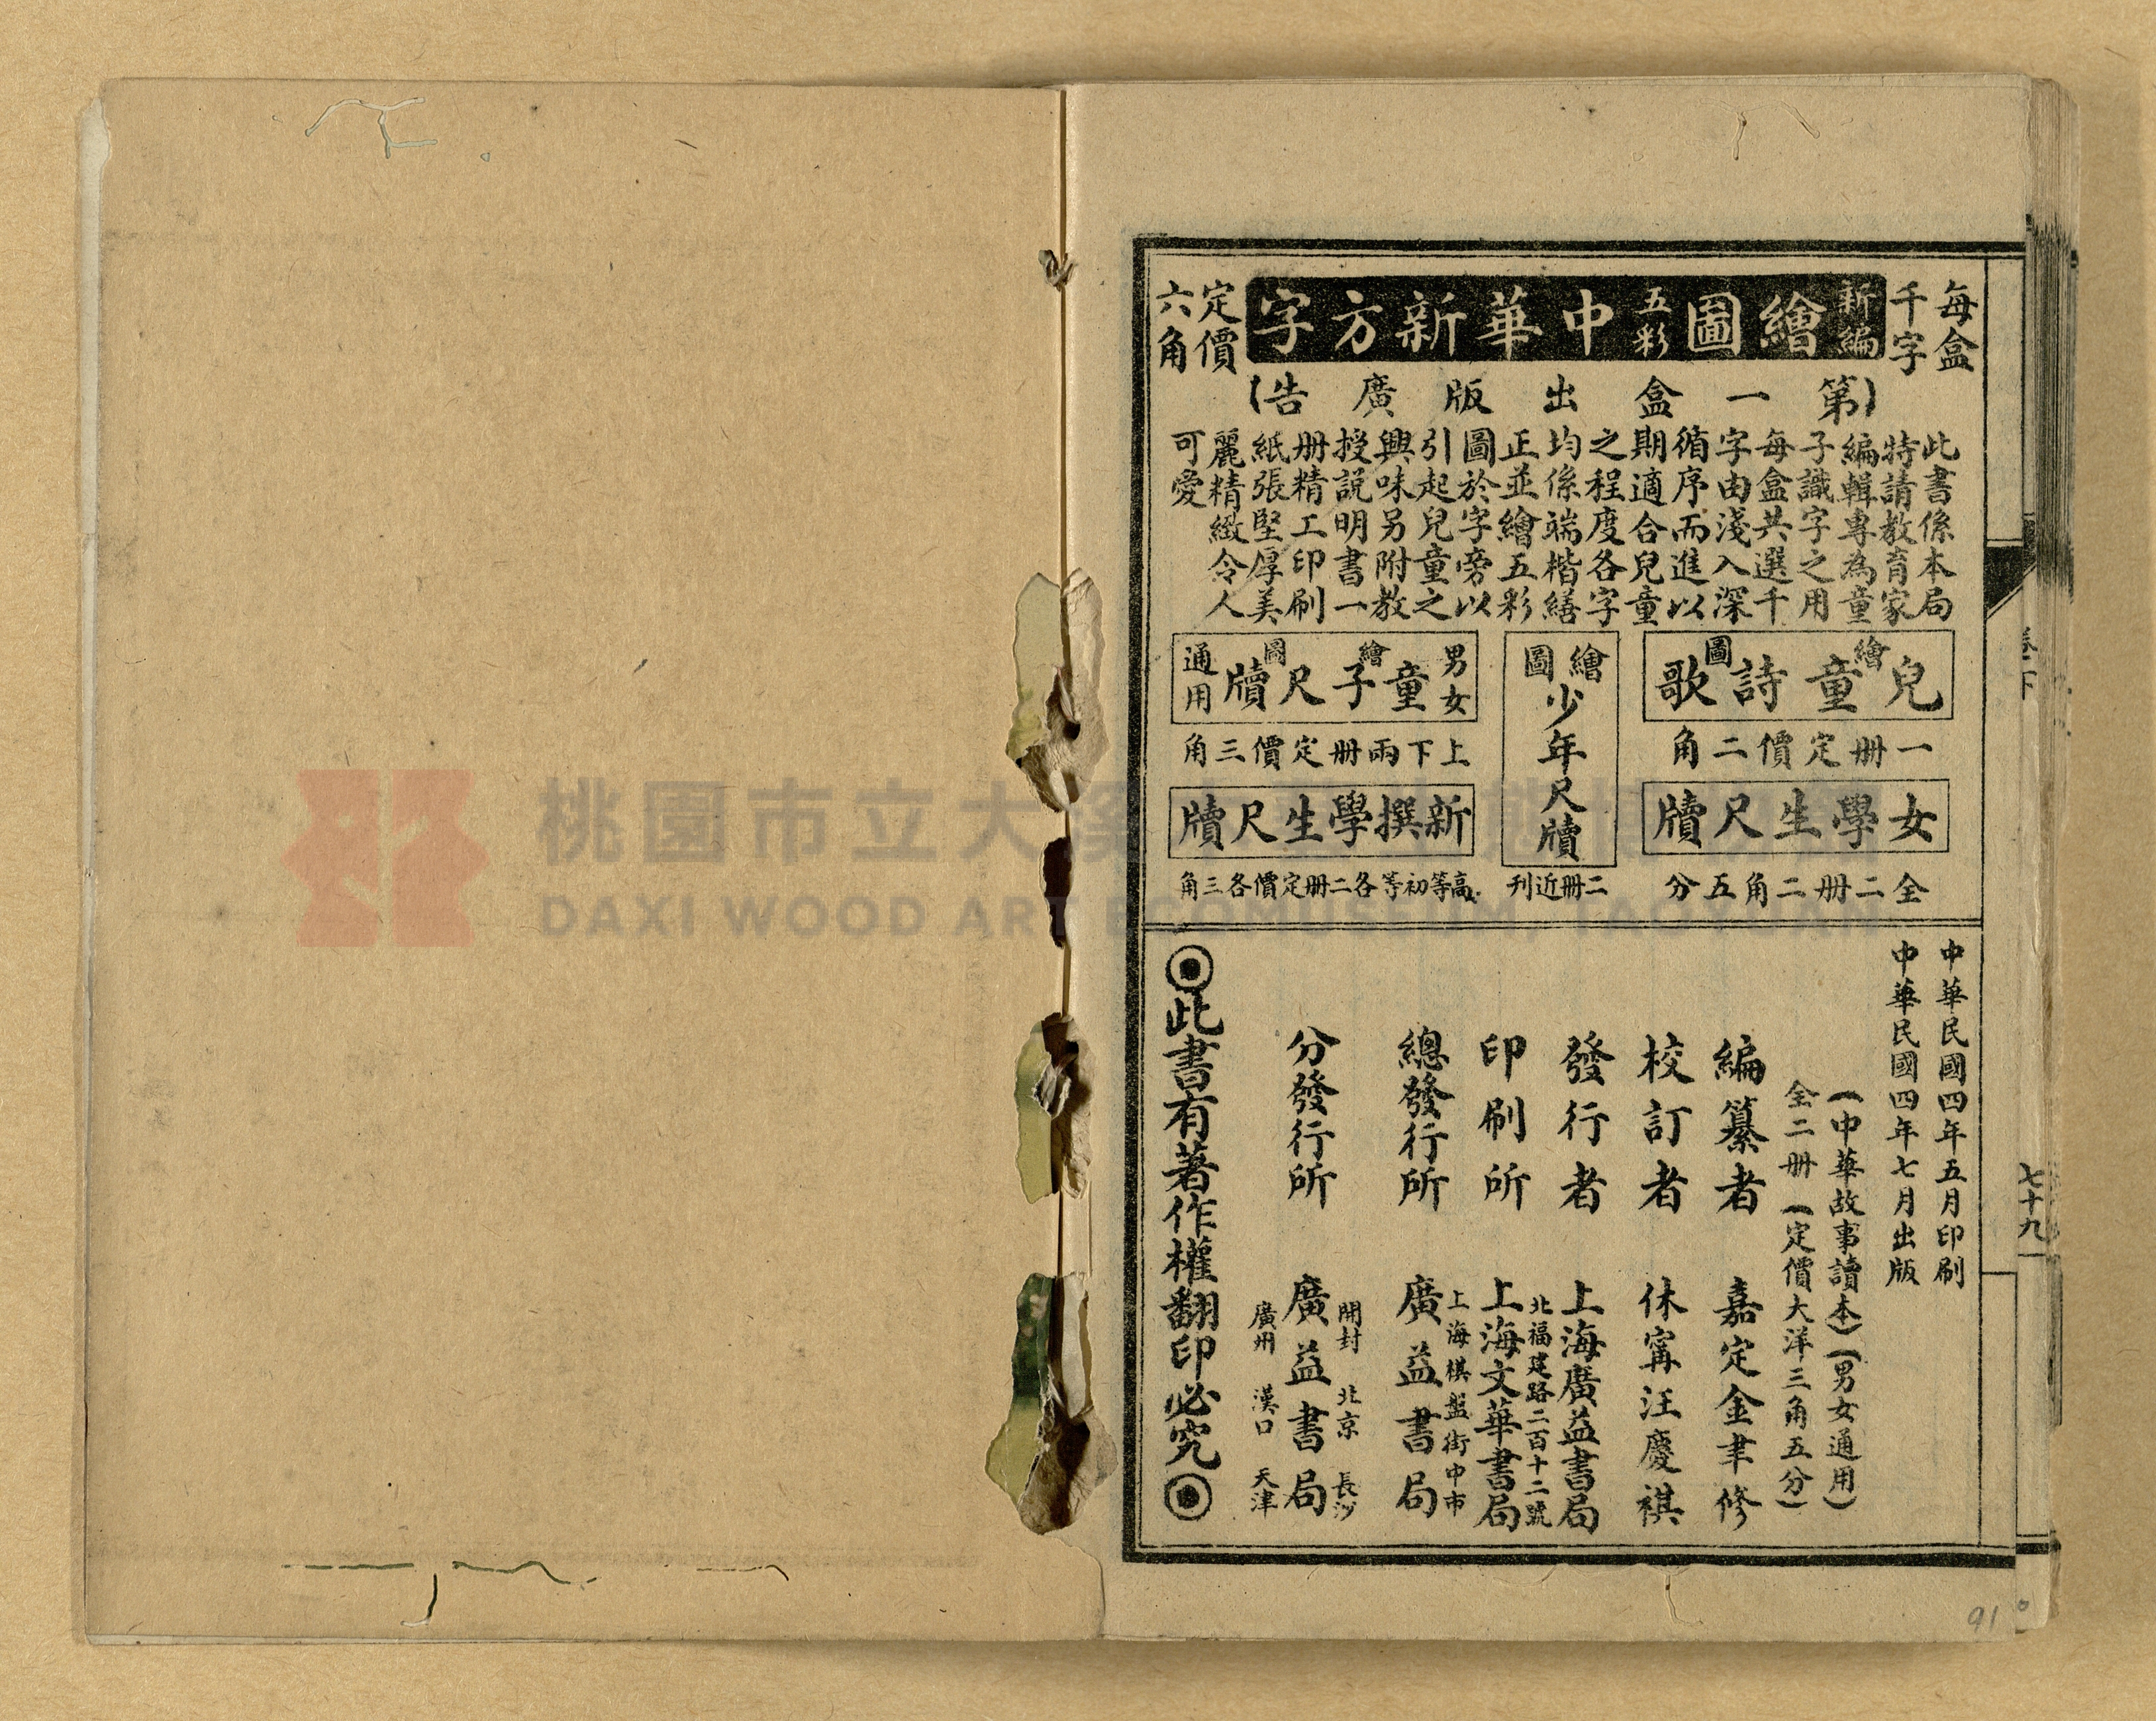 每盒
千字
新編繪圖五彩中華新方字
定價
六角
(第一盒出版廣告)
此書係本局
特請教育家
編輯專為童
子識字之用
每盒共選千
字由淺入深
循序而進以
期適合兒童
之程度各字
均係端楷繕
正並繪五彩
圖於字旁以
引起兒童之
興味另附教
授説明書一
册精工印刷
紙張堅厚美
麗精緻令人
可愛
繪圖兒童詩歌
一册定價二角
女學生尺牘
全二册二角五分
繪圖少年尺牘
二册近刊
男女
繪圖童子尺牘
通用
上下兩册定價三角
新撰學生尺牘
高等初等各二册定價各三角
中華民國四年五月印刷
中華民國四年七月出版
(中華故事讀本)(男女通用)
全二册(定價大洋三角五分)
編纂者 嘉定金聿修
校訂者 休甯汪慶祺
發行者 上海廣益書局
北福建路二百十二號
印刷所 上海文華書局
上海棋盤街中市
總發行所 廣益書局
開封 北京 長沙
分發行所 廣益書局
廣州 漢口 天津
◉此書有著作權翻印必究◉
卷下
七十九
91
桃園市立大溪
DAXI WOOD ART ECOMUSEUM, TAOYUAN